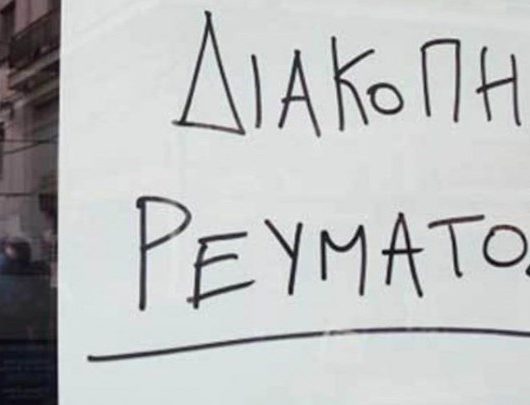 ΔΙΑΚΟΠΗ
ΡΕΥΜΑΤΟ